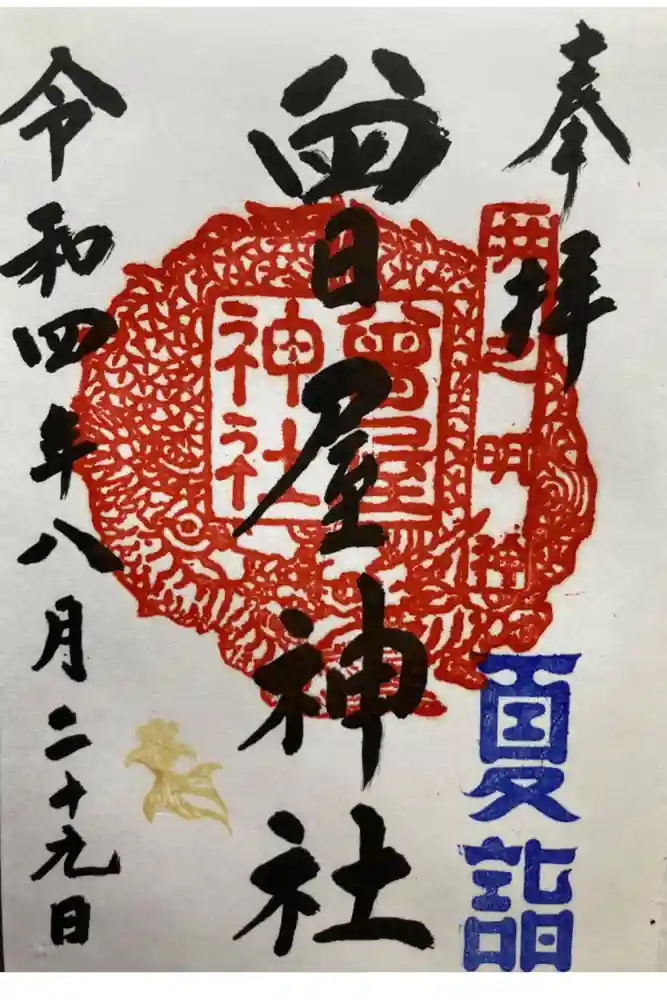 奉拝
井之明神
夏詣
曾屋神社
曾屋
神社
令和四年八月二十九日